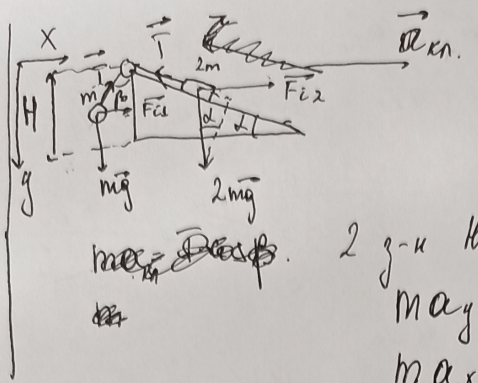 X
T
2m
a кл.
H
T
m
β
Fi1
Fi2
α
α
y
mg
2mg
2 з-н Н
may
max